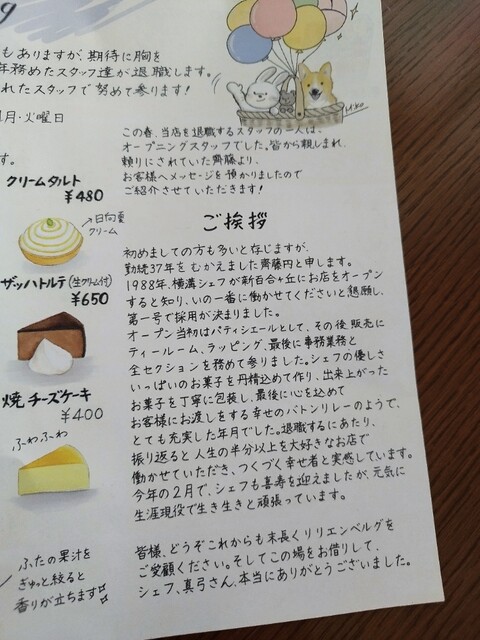 もありますが、期待に胸を
年務めたスタッフ達が退職します。
れたスタッフで努めて参ります!
月・火曜日
す。
Miko
この春、当店を退職するスタッフの一人は、
オープニングスタッフでした。皆から親しまれ、
頼りにされていた齊藤より、
お客様へメッセージを預かりましたので
ご紹介させていただきます!
クリームタルト
¥480
→日向夏
クリーム
ザッハトルテ(生クリーム付)
¥650
焼チーズケーキ
¥400
ふーわふーわ
ふたの果汁を
ぎゅっと絞ると
香りが立ちます
ご挨拶
初めましての方も多いと存じますが、
勤続37年をむかえました齊藤円と申します。
1988年、横溝シェフが新百合ヶ丘にお店をオープン
すると知り、いの一番に働かせてくださいと懇願し、
第一号で採用が決まりました。
オープン当初はパティシエールとして、その後販売に
ティールーム、ラッピング、最後に事務業務と
全セクションを務めて参りました。シェフの優しさ
いっぱいのお菓子を丹精込めて作り、出来上がった
お菓子を丁寧に包装し、最後に心を込めて
お客様にお渡しをする幸せのバトンリレーのようで、
とても充実した年月でした。退職するにあたり、
振り返ると人生の半分以上を大好きなお店で
働かせていただき、つくづく幸せ者と実感しています。
今年の2月で、シェフも喜寿を迎えましたが、元気に
生涯現役で生き生きと頑張っています。
皆様、どうぞこれからも末長くリリエンベルグを
ご笑顧ください。そしてこの場をお借りして、
シェフ、真弓さん、本当にありがとうございました。